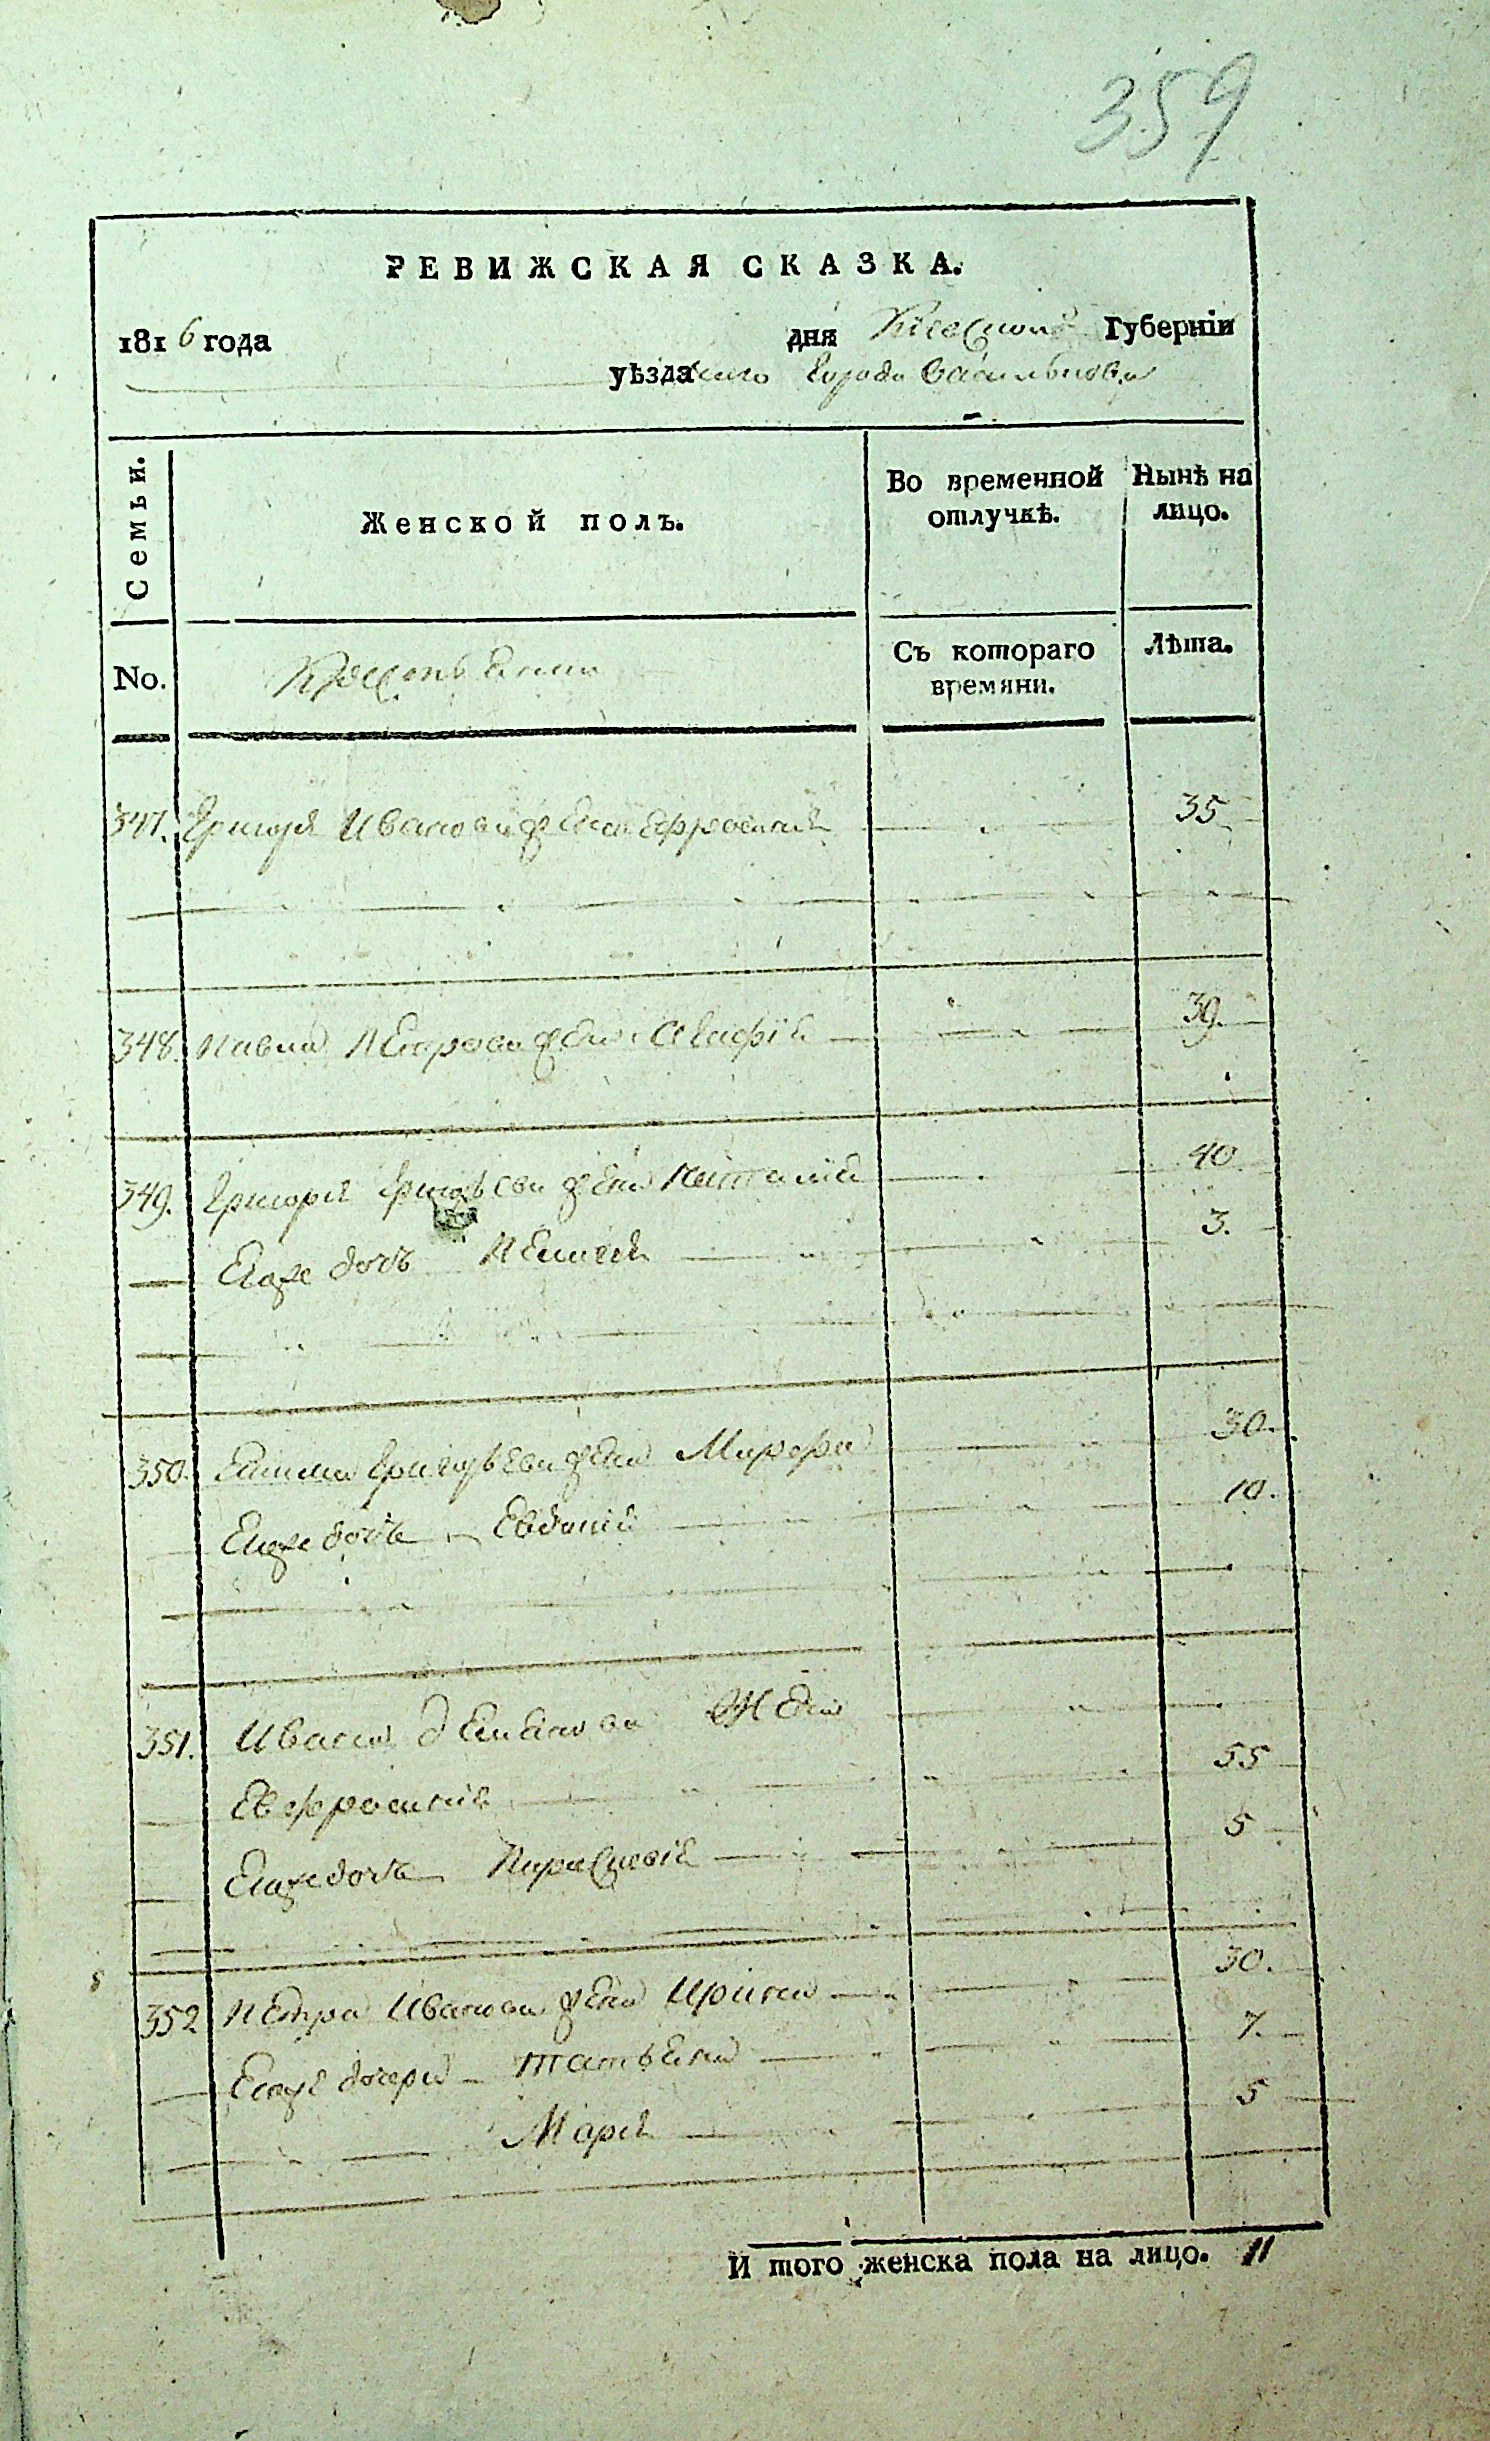 359
РЕВИЖСКАЯ СКАЗКА.
1816 года дня Кіевской Губерніи
уѣзда города Василькова
Семьи. Женской полъ. Во временной отлучкѣ. Нынѣ на лицо.
No. Крестьяне Съ котораго времяни. Лѣта.
347. Григоря Иванова жена Ефросинія 35
348. Павла Петрова жена 39.
349. Григорія жена Наталия 40
Егоже дочь 3.
350. Григорьева жена Марфа 30.
Егоже дочь Евдокія 10.
351. Ивана Демянова жена
Евфросинія 55
Егоже дочь Параскевія 5
352 Петра Иванова жена Ирина 30.
Егоже дочери Татьяна 7.
Марія 5
И того женска пола на лицо. 11